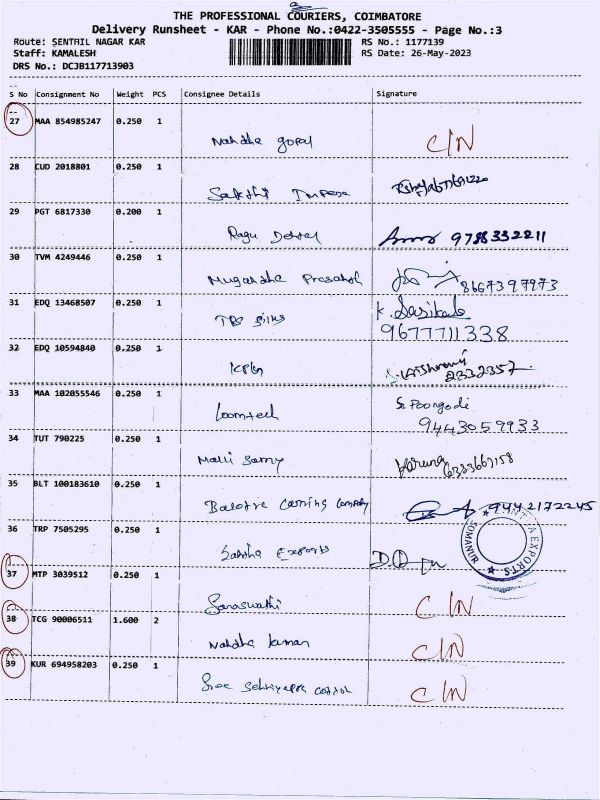 THE PROFESSIONAL COURIERS, COIMBATORE
Delivery Runsheet - KAR - Phone No.:0422-3505555 - Page No.:3
Route: SENTHIL NAGAR KAR RS No.: 1177139
Staff: KAMALESH RS Date: 26-May-2023
DRS No.: DCJB117713903
S No Consignment No Weight PCS Consignee Details Signature
27 MAA 854985247 0.250 1
Nandha gopal C/N
28 CUD 2018801 0.250 1
Sakthi
29 PGT 6817330 0.200 1
Ragu 9788332211
30 TVM 4249446 0.250 1
Prasath 8667397973
31 EDQ 13468507 0.250 1
K. Sasikala
TBS silks 9677711338
32 EDQ 10594840 0.250 1
KPN 2332357
33 MAA 102055546 0.250 1
Loomtech S. Poongodi
9443059933
34 TUT 790225 0.250 1
Malli Samy Karuna 6383669158
35 BLT 100183610 0.250 1
Company 9442172245
36 TRP 7505295 0.250 1
Exports
SOMANUR EXPORTS
37 MTP 3039512 0.250 1
Saraswathi C/N
38 TCG 90006511 1.600 2
Nandha kumar C/N
39 KUR 694958203 0.250 1
Sree cotton C/N